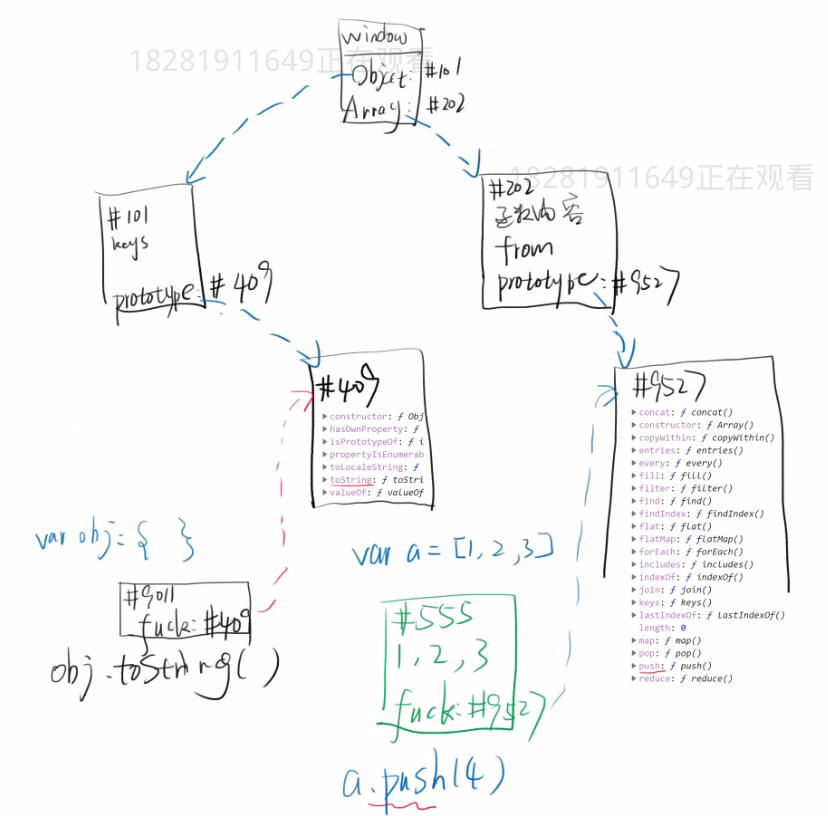 window
18281911649正在观看
Object: #101
Array: #202
18281911649正在观看
#101
keys
prototype: #409
#202
函数内容
from
prototype: #9527
#409
constructor: ƒ Obj
hasOwnProperty: ƒ
isPrototypeOf: ƒ i
propertyIsEnumerab
toLocaleString: ƒ
toString: ƒ toStri
valueOf: ƒ valueOf
#9527
concat: ƒ concat()
constructor: ƒ Array()
copyWithin: ƒ copyWithin()
entries: ƒ entries()
every: ƒ every()
fill: ƒ fill()
filter: ƒ filter()
find: ƒ find()
findIndex: ƒ findIndex()
flat: ƒ flat()
flatMap: ƒ flatMap()
forEach: ƒ forEach()
includes: ƒ includes()
indexOf: ƒ indexOf()
join: ƒ join()
keys: ƒ keys()
lastIndexOf: ƒ lastIndexOf()
length: 0
map: ƒ map()
pop: ƒ pop()
push: ƒ push()
reduce: ƒ reduce()
var obj = { }
#9011
fuck: #409
obj.toString()
var a = [1, 2, 3]
#555
1, 2, 3
fuck: #9527
a.push(4)